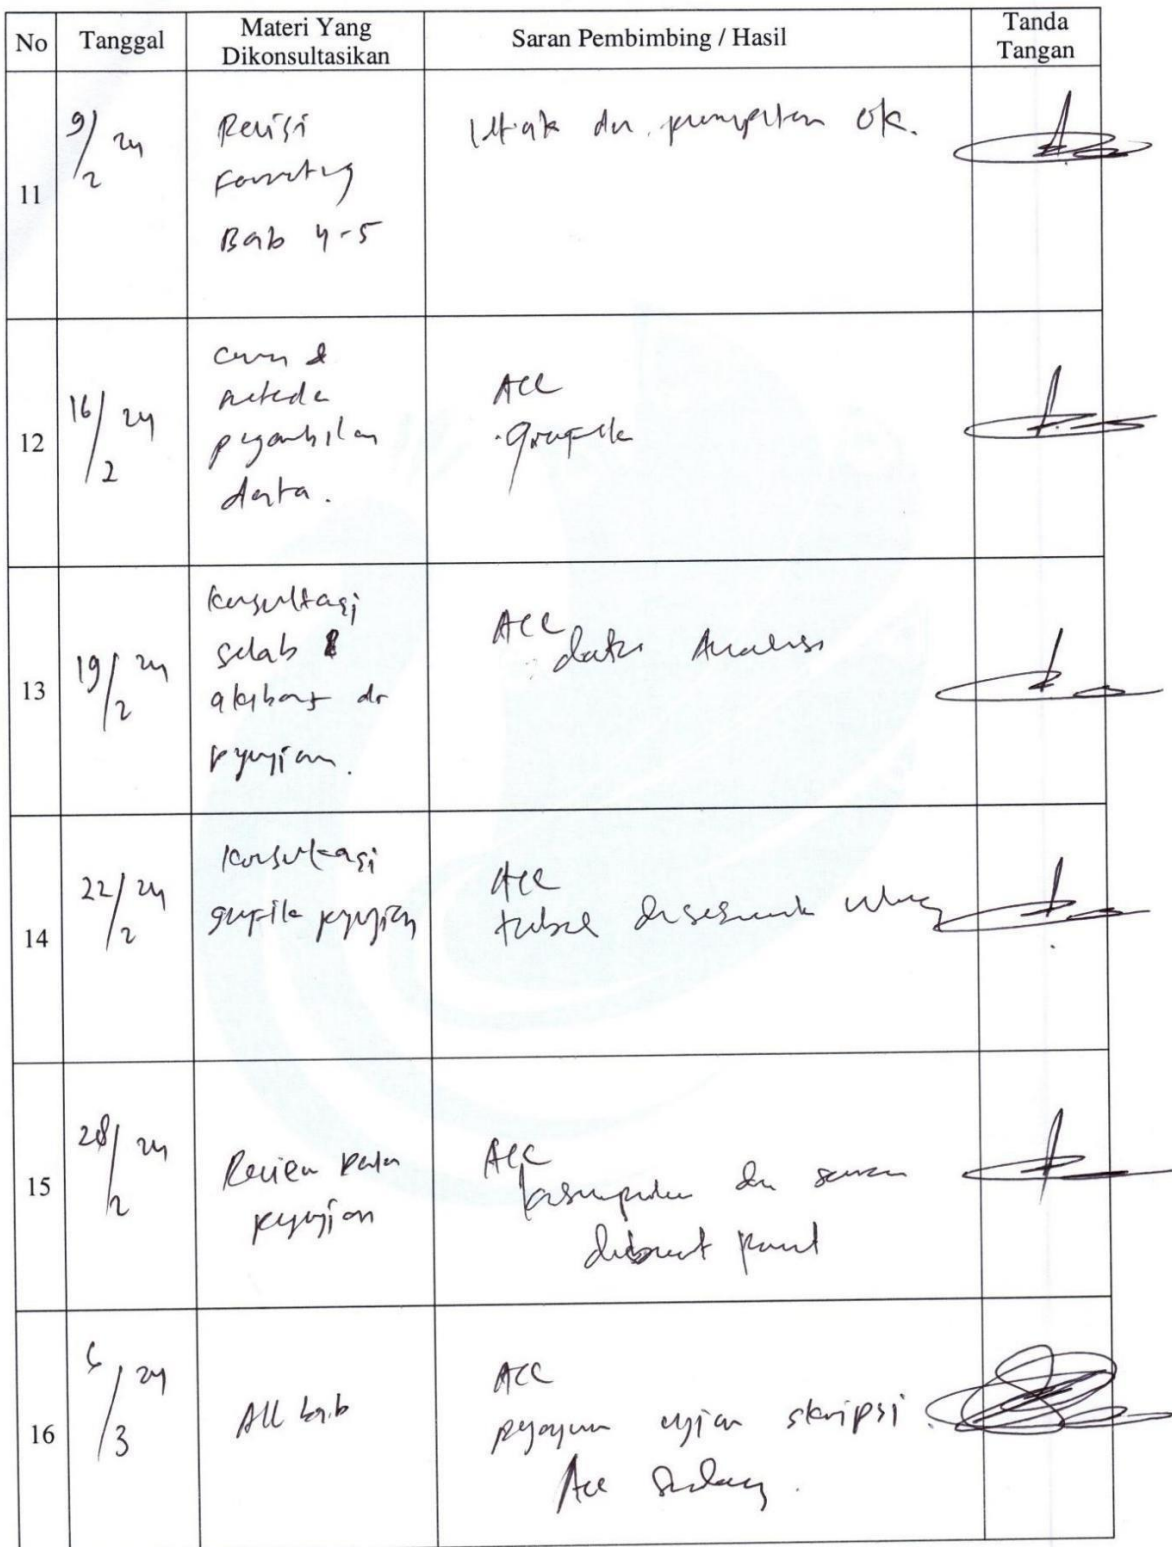 No Tanggal Materi Yang Dikonsultasikan Saran Pembimbing / Hasil Tanda Tangan
11
9/2 24
Revisi
Bab 4-5
ok.
12
16/2 24
metode
pengambilan
data.
Acc
grafik
13
19/2 24
konsultasi
sebab &
akibat dr
pengujian.
Acc
data Analisis
14
22/2 24
konsultasi
grafik pengujian
Acc
tabel
15
28/2 24
Review
pengujian
Acc
kesimpulan dan saran
dibuat
16
6/3 24
All bab
Acc
ujian skripsi.
Acc Sidang.